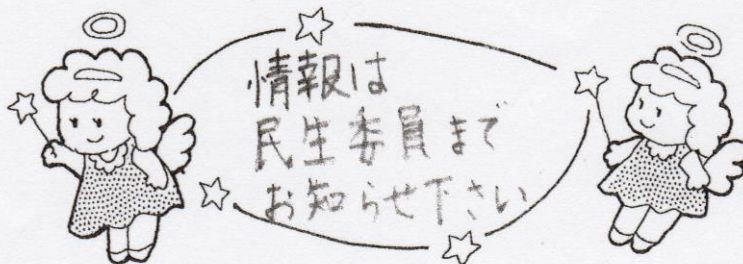 情報は
民生委員まで
お知らせ下さい